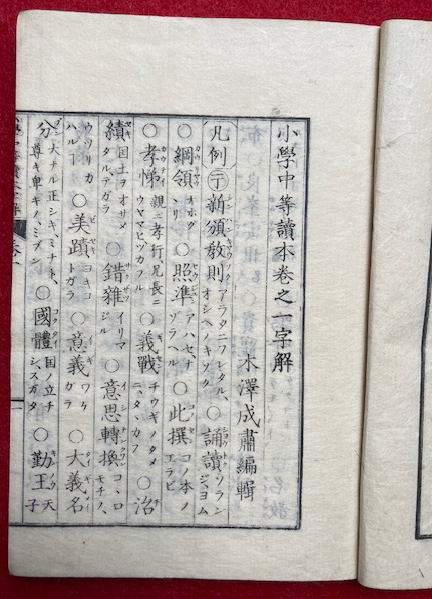 小學中等讀本卷之一字解
木澤成肅編輯
凡例 一丁 新頒敎則 アラタニフレタル、オシヘノキソク ○誦讀 ソランジ、ヨム
○綱領 オホダ、リ ○照準 アハセ、ナゾラヘル ○此撰 コノ本ノエラビ
○孝悌 親ニ孝行、兄長ニウヤマヒツカフル ○義戰 チウギノタメニ、タ、カフ ○治
績 国土ヲオサメタルアガラ ○錯雜 イリマジル ○意思轉換 コ、ロモチノ、
ウツリカハル ○美蹟 ○意義 ワケガラ ○大義名
分 大ナル正シキ、ミナト、尊キ卑キノ、ミブン ○國體 国ノ立チシ、スガタ ○勤王 天子